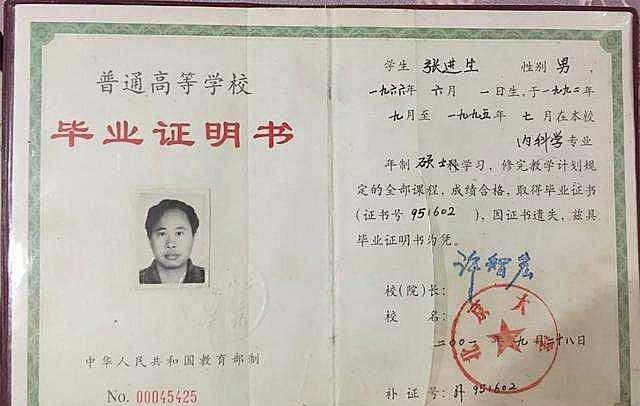 普通高等学校
毕业证明书
中华人民共和国教育部制
No. 00045425
学生 张进生 性别 男，
一九六六年 六月 一日生，于一九九二年
九月至 一九九五年 七月在本校
内科学专业
年制 硕士 学习，修完教学计划规
定的全部课程，成绩合格，取得毕业证书
(证书号 951602 )，因证书遗失，兹具
毕业证明书为凭。
校(院)长： 许智宏
校 名：
北京大学
二00一年九月二十八日
补 证 号： 951602